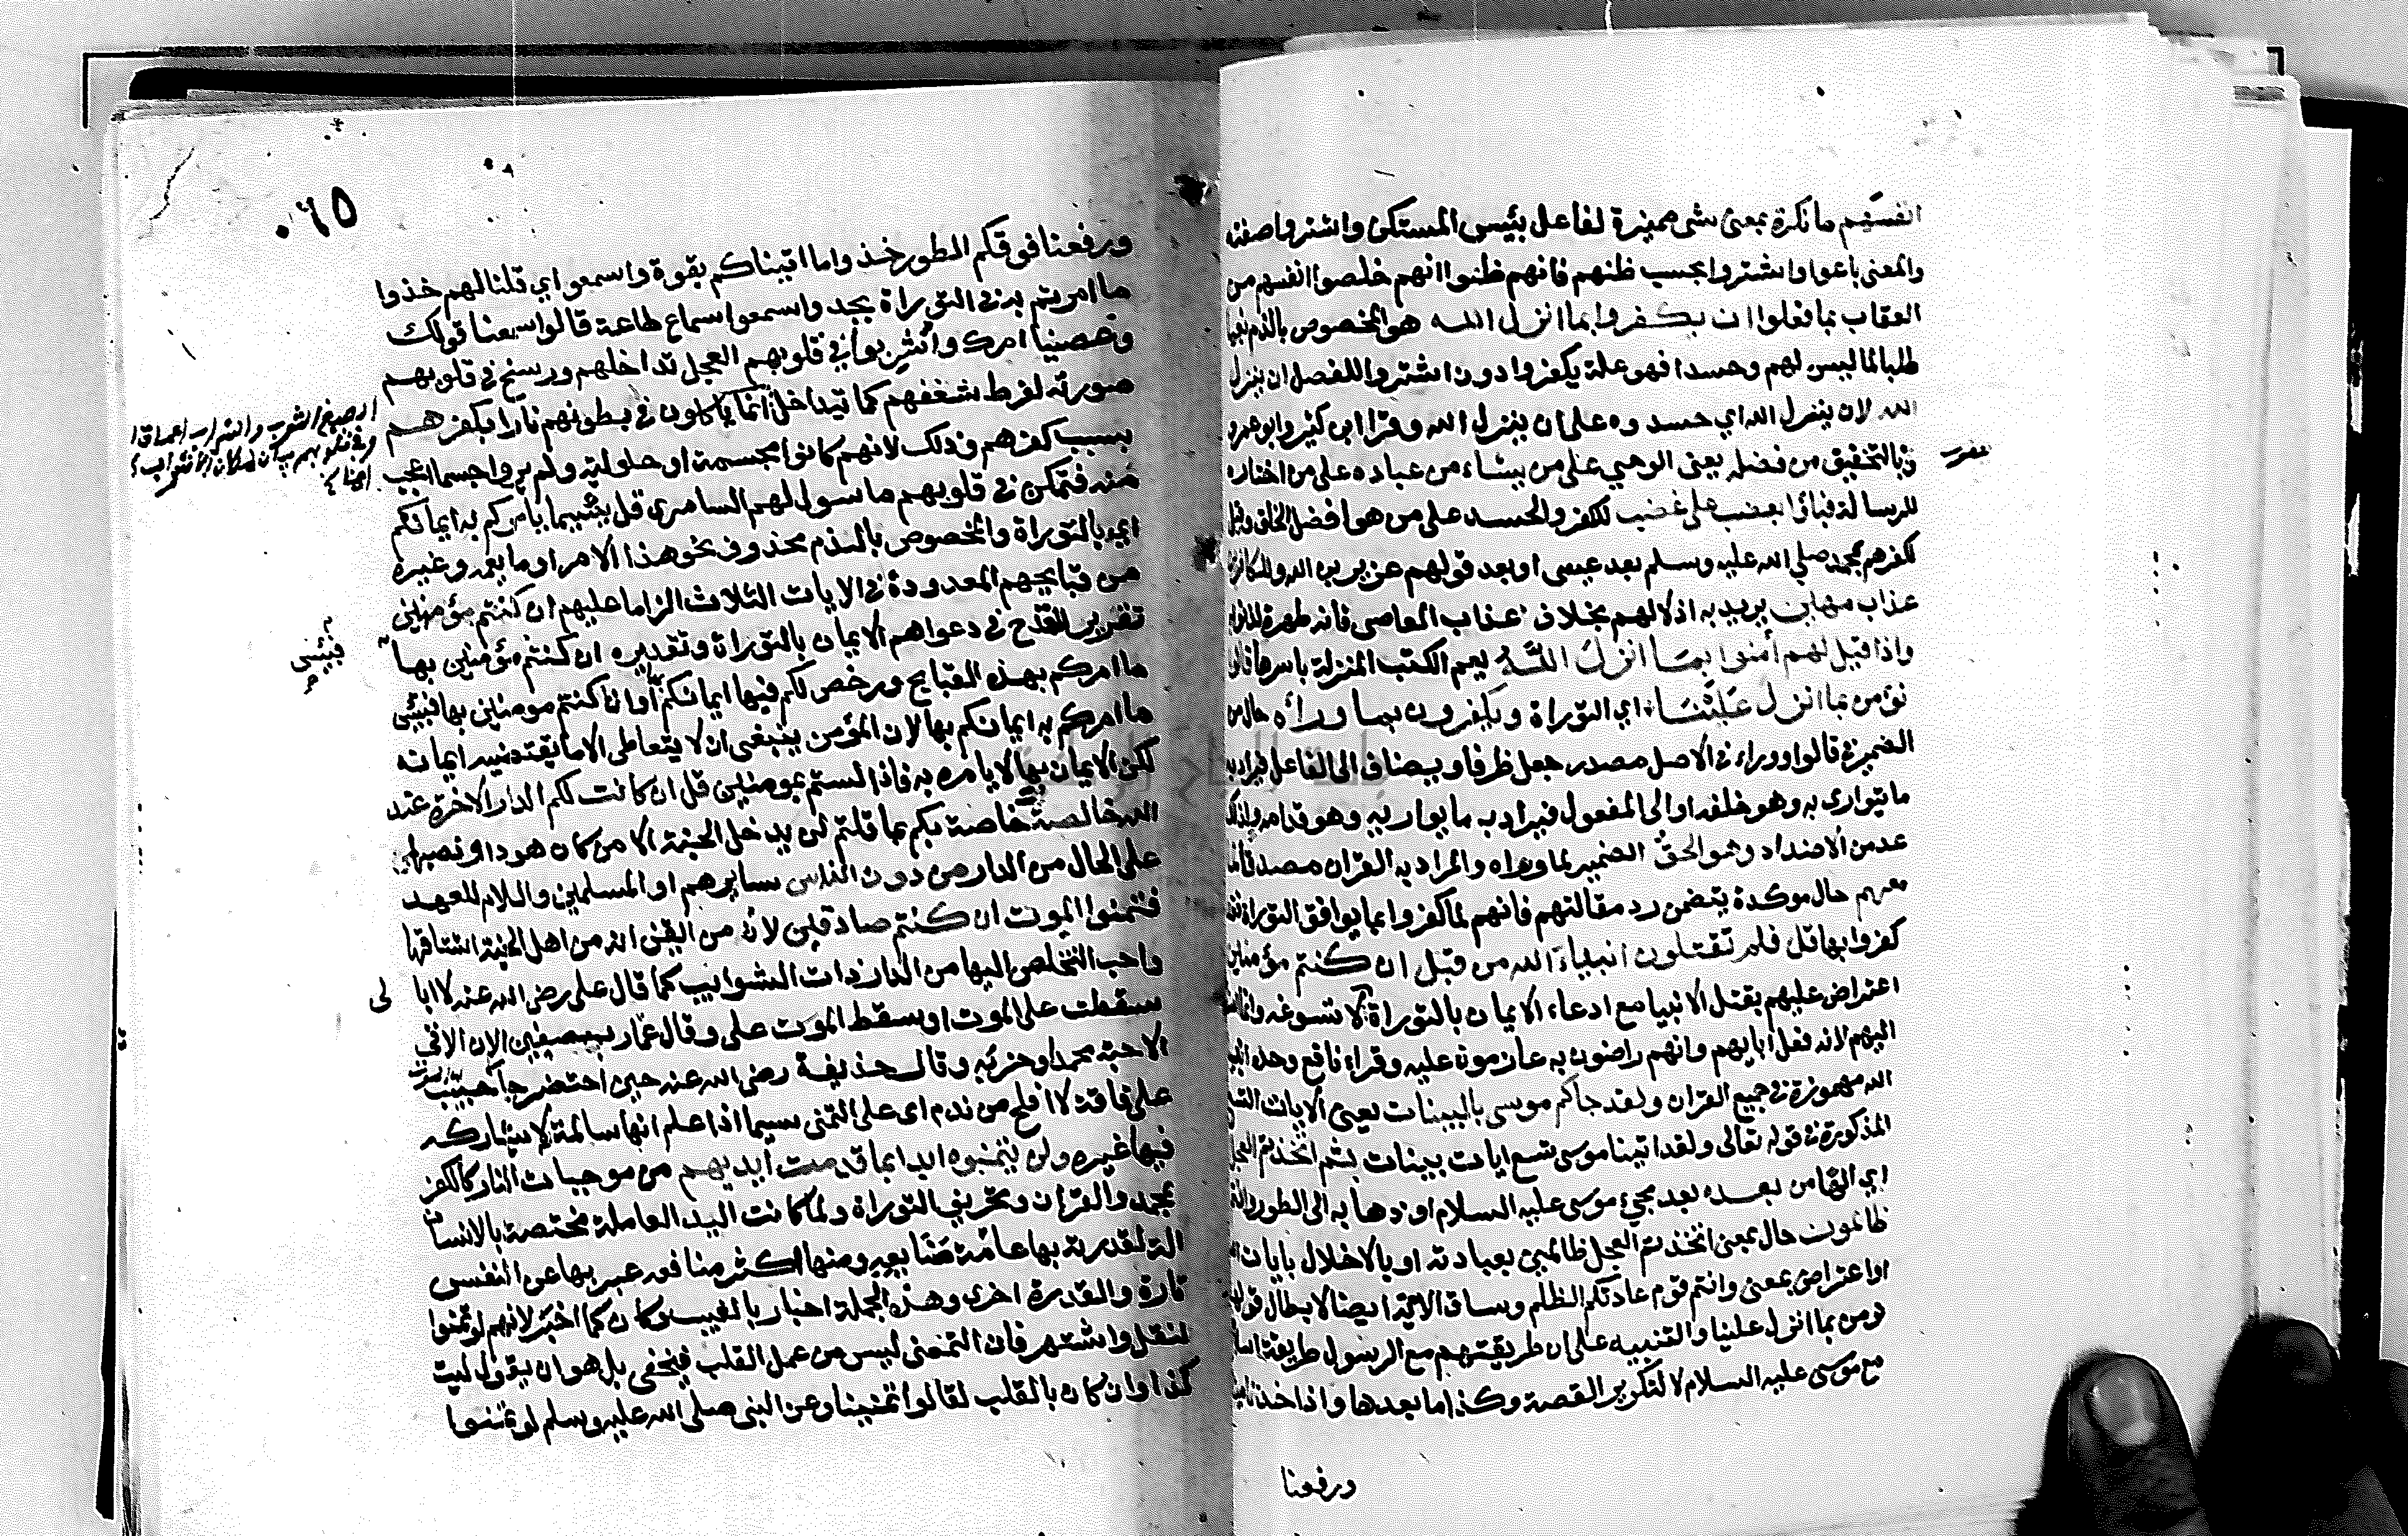 انفسهم ما نكرة بمعنى شى مميزة لفاعل بئيس المستكن واشتروا صفته
والمعنى باعوا واشتروا بحسب ظنهم فانهم ظنوا انهم خلصوا انفسهم من
العقاب بما فعلوا ان يكفروا بما انزل الله هو المخصوص بالذم بغيا
طلبا لما ليس لهم وحسدا فهو علة يكفروا دون اشتروا للفصل ان ينزل
الله لان ينزل الله اي حسدوه على ان ينزل الله وقرا ابن كثير وابو عمرو
بالتخفيف من فضله يعنى الوحي على من يشاء من عباده على من اختاره
للرسالة فباؤا بغضب على غضب للكفر والحسد على من هو افضل الخلق وقيل
لكفرهم بمحمد صلي الله عليه وسلم بعد عيسى او بعد قولهم عزير بن الله وللكافرين
عذاب مهين يريد به اذلالهم بخلاف عذاب العاصى فانه طهرة لذنوبه
واذا قيل لهم أمنوا بما انزل الله يعم الكتب المنزلة باسرها قالوا
نؤمن بما انزل علينا اي التوراة ويكفرون بما وراءه حال من
الضمير فى قالوا ووراء فى الاصل مصدر جعل ظرفا ويضاف الى الفاعل فيراد به
ما يتوارى به وهو خلفه او الى المفعول فيراد به ما يواريه وهو قدامه ولذلك
عد من الاضداد وهو الحق الضمير لما وراه والمراد به القران مصدقا لما
معهم حال موكدة يتضمن رد مقالتهم فانهم لما كفروا بما يوافق التوراة فقد
كفروا بها قل فلم تقتلون انبياء الله من قبل ان كنتم مؤمنين
اعتراض عليهم بقتل الانبيا مع ادعاء الايمان بالتوراة لا تسوغه وانما
اليهم لانه فعل ابايهم وانهم راضون به عازمون عليه وقراء نافع وحده انبئاء
الله مهموزة فى جميع القران ولقد جاكم موسى بالبينات يعنى الايات التسع
المذكورة فى قوله تعالى ولقد اتينا موسى تسع ايات بينات ثم اتخذتم العجل
اي الها من بعده بعد مجيء موسى عليه السلام او ذهابه الى الطور وانتم
ظالمون حال بمعنى اتخذتم العجل ظالمين بعبادته او بالاخلال بايات الله
او اعتراض بمعنى وانتم قوم عادتكم الظلم ومساق الاية ايضا لابطال قولهم
نومن بما انزل علينا والتنبيه على ان طريقتهم مع الرسول طريقة اسلافهم
مع موسى عليه السلام لا لتكرير القصة وكذا ما بعدها واذ اخذنا ميثاقكم
ورفعنا
٠٦٥
ورفعنا فوقكم الطور خذوا ما اتيناكم بقوة واسمعوا اي قلنا لهم خذوا
ما امرتم به فى التوراة بجد واسمعوا سماع طاعة قالوا سمعنا قولك
وعصينا امرك وأشربوا في قلوبهم العجل تداخلهم ورسخ فى قلوبهم
صورته لفرط شغفهم كما تيداخل انما ياكلون فى بطونهم نارا بكفرهم
بسبب كفرهم وذلك لانهم كانوا مجسمة او حلولية ولم يروا جسما اعجب
منه فتمكن فى قلوبهم ما سول لهم السامرى قل بئسما يامركم به ايمانكم
اي بالتوراة والمخصوص بالذم محذوف نحو هذا الامر او ما يعمه وغيره
من قبايحهم المعدودة فى الايات الثلاث الزاما عليهم ان كنتم مؤمنين
تقرير للقدح فى دعواهم الايمان بالتوراة وتقديره ان كنتم مؤمنين بها
ما امركم بهذه القبايح ورخص لكم فيها ايمانكم او ان كنتم مومنين بها فبئس
ما امركم به ايمانكم بها لان المؤمن ينبغى ان لا يتعاطى الا ما يقتضيه ايمانه
لكن الايمان بها لا يامره به فاذا لستم بمومنين قل ان كانت لكم الدار الاخرة عند
الله خالصة خاصة بكم بما قلتم لن يدخل الجنة الا من كان هودا ونصبها
على الحال من الدار من دون الناس سايرهم او المسلمين واللام للعهد
فتمنوا الموت ان كنتم صادقين لان من ايقن انه من اهل الجنة اشتاقها
واحب التخلص اليها من الدار ذات الشوايب كما قال على رضى الله عنه لا ابالى
سقطت على الموت او سقط الموت على وقال عمار بصفين الان الاقي
الاحبة محمدا وحزبه وقال حذيفة رضى الله عنه حين احتضر جا حبيب
على فاقة لا افلح من ندم اى على التمنى سيما اذا علم انها سالمة لا يشاركه
فيها غيره ولن يتمنوه ابدا بما قدمت ايديهم من موجبات النار كالكفر
بمحمد والقرآن وتحريف التوراة ولما كانت اليد العاملة مختصة بالانسان
الة لقدرته بها عامة صنايعه ومنها اكثر منافعه عبر بها عن النفس
تارة والقدرة اخرى وهذه الجملة اخبار بالغيب وكان كما اخبر لانهم لو تمنوا
لنقل واشتهر فان التمنى ليس من عمل القلب فيخفى بل هو ان يقول ليت
كذا وان كان بالقلب لقالوا تمنينا وعن النبى صلى الله عليه وسلم لو تمنوا
فبئس